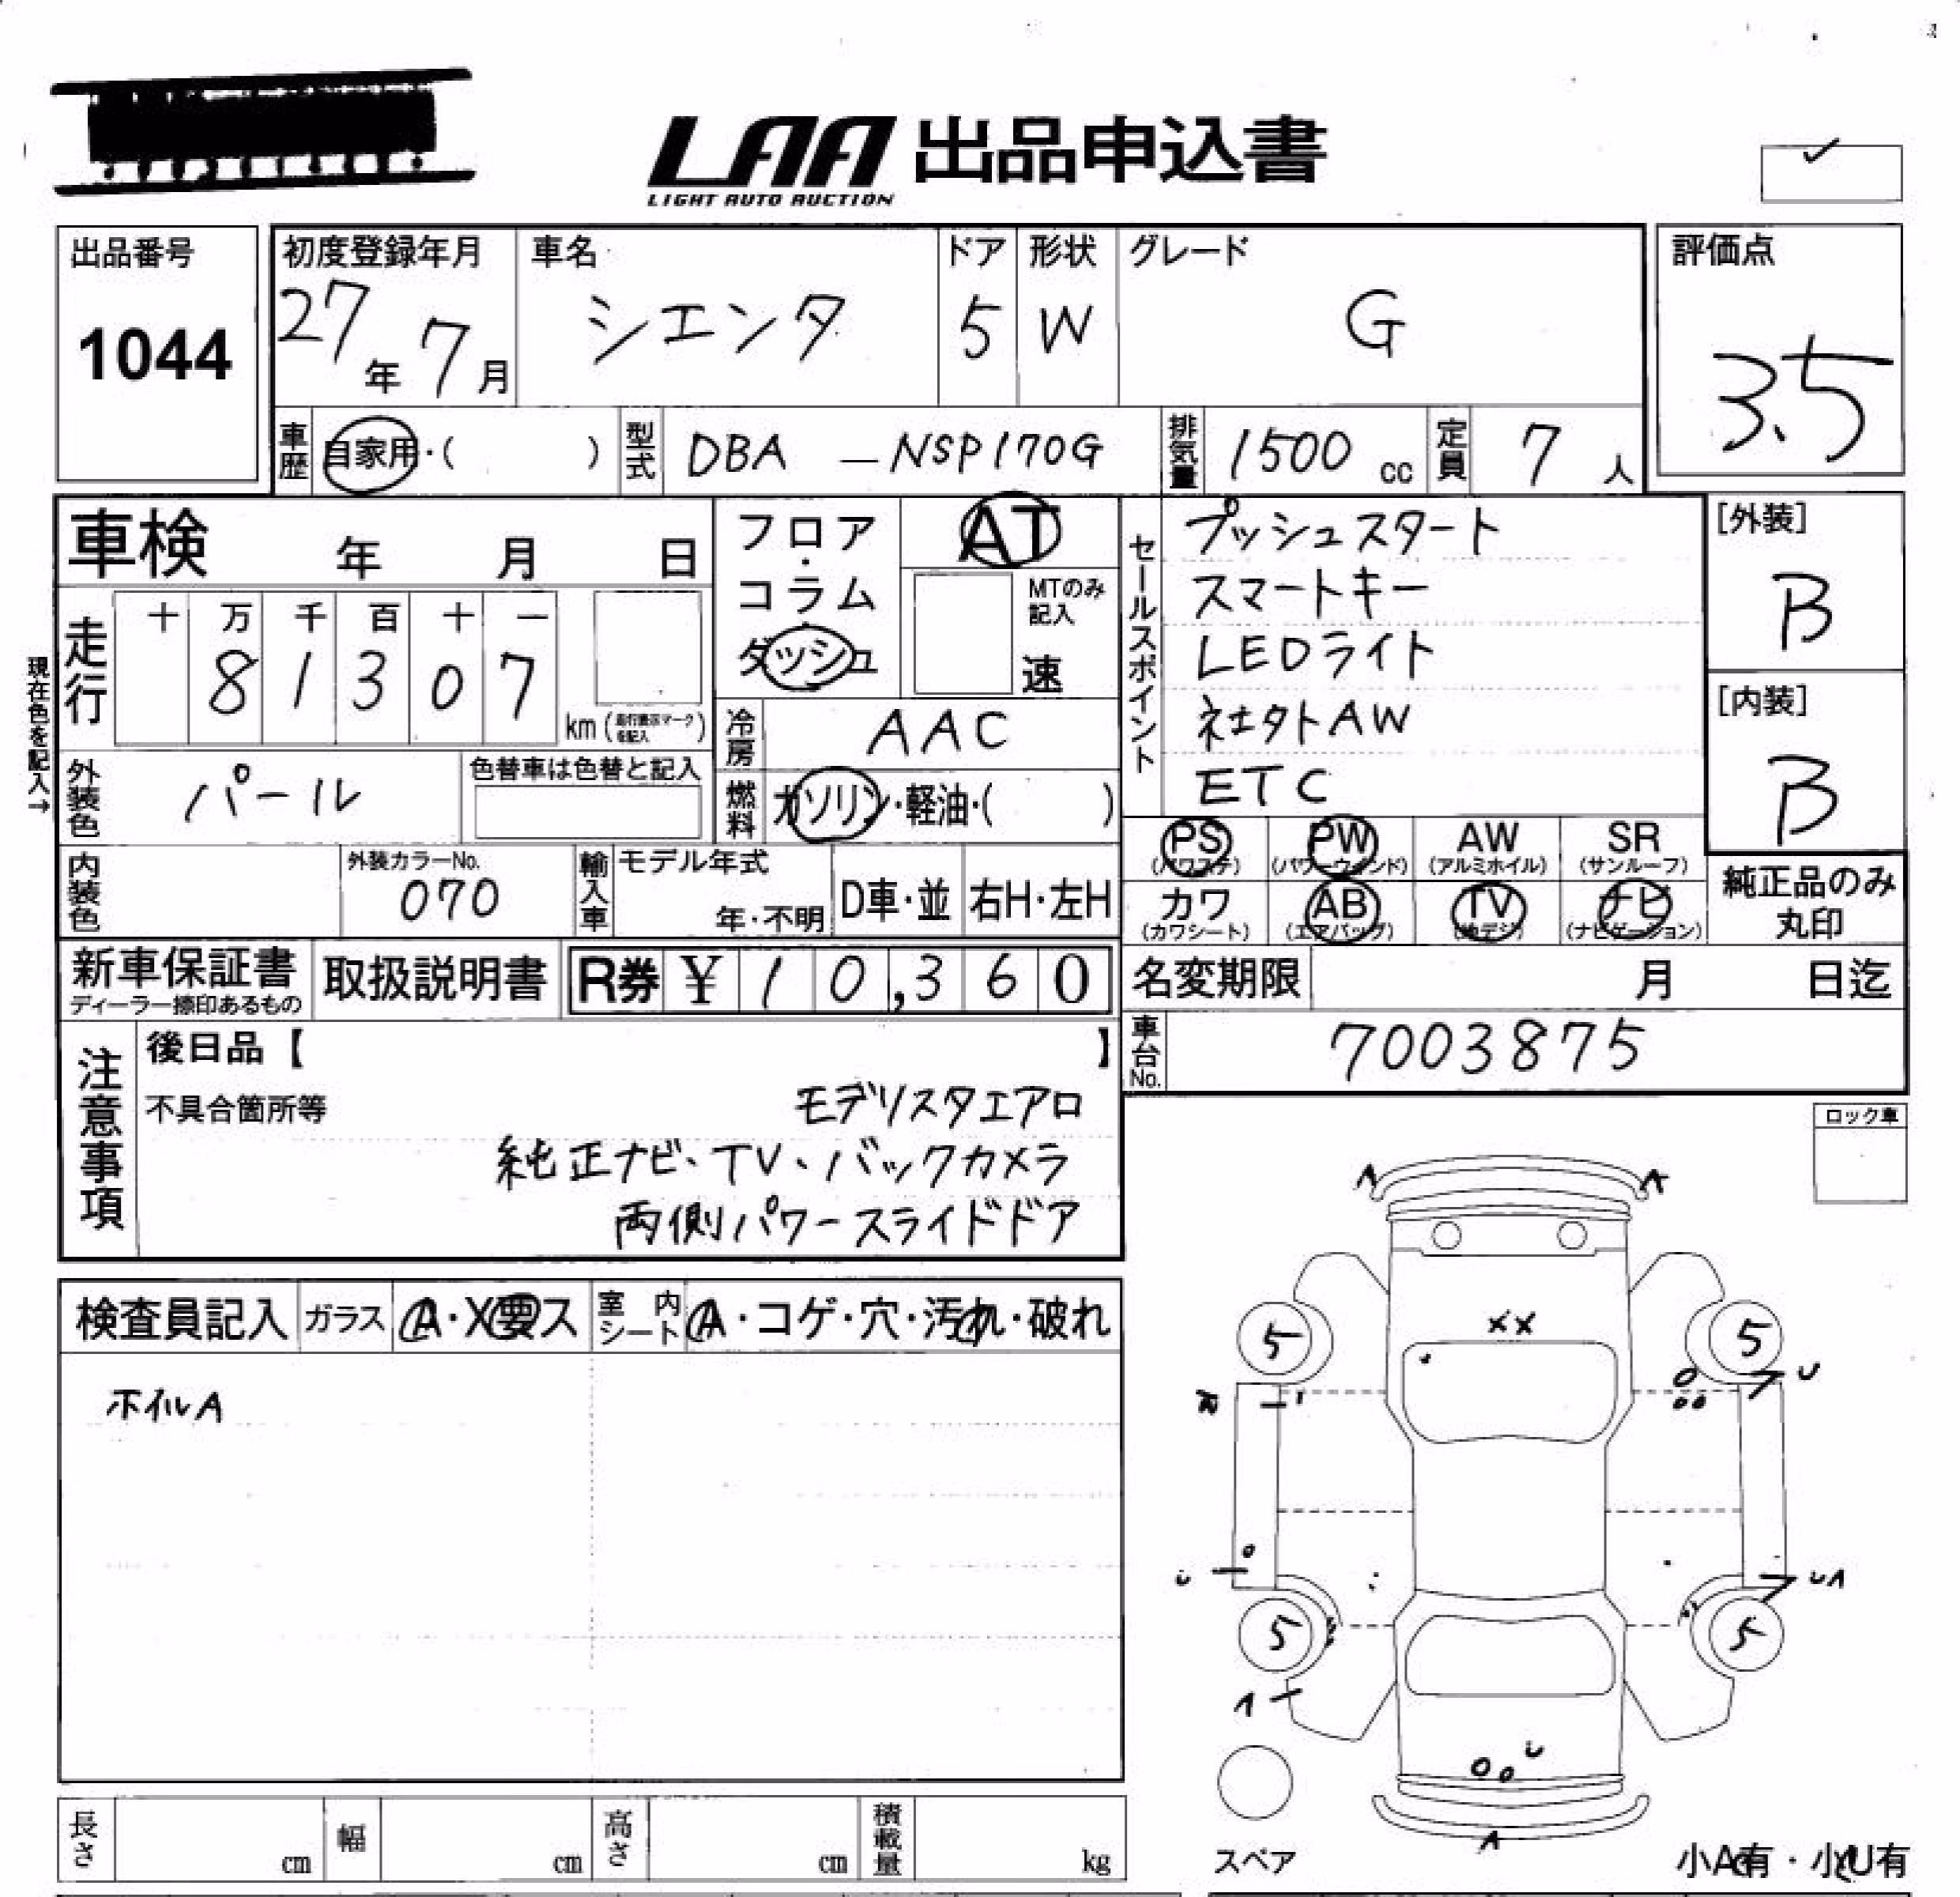 LAA 出品申込書
LIGHT AUTO AUCTION
出品番号
1044
初度登録年月
27年 7月
車名
シエンタ
ドア
5
形状
W
グレード
G
評価点
3.5
車歴
自家用・( )
型式
DBA — NSP170G
排気量
1500 cc
定員
7 人
車検 年 月 日
フロア・コラム・ダッシュ
AT
MTのみ記入
速
セールスポイント
プッシュスタート
スマートキー
LEDライト
社外AW
ETC
[外装]
B
[内装]
B
現在色を記入→
走行
十 万 千 百 十 一
8 1 3 0 7
km (走行表示マークを記入)
冷房
AAC
外装色
パール
色替車は色替と記入
燃料
ガソリン・軽油・( )
PS (パワステ)
PW (パワーウインド)
AW (アルミホイル)
SR (サンルーフ)
カワ (カワシート)
AB (エアバッグ)
TV (地デジ)
ナビ (ナビゲーション)
純正品のみ
丸印
内装色
外装カラーNo.
070
輸入車
モデル年式
年・不明
D車・並
右H・左H
新車保証書
ディーラー捺印あるもの
取扱説明書
R券 ¥ 10,360
名変期限 月 日迄
車台No.
7003875
注意事項
後日品【 】
不具合箇所等
モデリスタエアロ
純正ナビ、TV、バックカメラ
両側パワースライドドア
ロック車
検査員記入
ガラス
A・X要ス
室内シート
A・コゲ・穴・汚れ・破れ
ホイルA
A A
XX
5 5
U
5 5
UA
A
スペア
小A有・小U有
長さ cm
幅 cm
高さ cm
積載量 kg